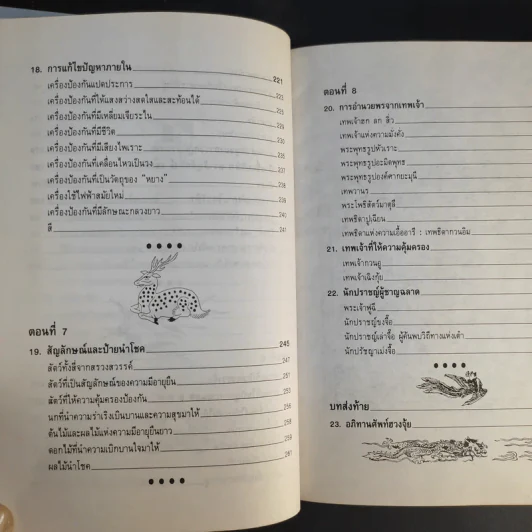 18. การแก้ไขปัญหาภายใน 221
เครื่องป้องกันแปดประการ 222
เครื่องป้องกันที่ให้แสงสว่างสดใสและสะท้อนได้
เครื่องป้องกันที่มีเหลี่ยมเจียระไน
เครื่องป้องกันที่มีชีวิต
เครื่องป้องกันที่มีเสียงไพเราะ
เครื่องป้องกันที่เคลื่อนไหวเป็นวง
เครื่องป้องกันที่เป็นวัตถุของ "หยาง" 238
เครื่องใช้ไฟฟ้าสมัยใหม่ 239
เครื่องป้องกันที่มีลักษณะกลวงยาว 240
สี 241
ตอนที่ 7
19. สัญลักษณ์และป้ายนำโชค 245
สัตว์ทั้งสี่จากสรวงสวรรค์ 247
สัตว์ที่เป็นสัญลักษณ์ของความมีอายุยืน 251
สัตว์ที่ให้ความคุ้มครองป้องกัน 253
นกที่นำความร่าเริงเบิกบานและความสุขมาให้ 256
ต้นไม้และผลไม้แห่งความมีอายุยืนยาว 258
ดอกไม้ที่นำความเบิกบานใจมาให้ 259
ผลไม้นำโชค 261
ตอนที่ 8
20. การอำนวยพรจากเทพเจ้า
เทพเจ้าฮก ลก ซิ่ว
เทพเจ้าแห่งความมั่งคั่ง
พระพุทธรูปหัวเราะ
พระพุทธรูปอะมิตพุทธ
พระพุทธรูปองค์ศากยะมุนี
เทพวานร
พระโพธิสัตว์มาตุลี
เทพธิดาปูเฉียน
เทพธิดาแห่งความเอื้ออารี : เทพธิดากวนอิม
21. เทพเจ้าที่ให้ความคุ้มครอง
เทพเจ้ากวนอู
เทพเจ้าเฉิงกุ้ย
22. นักปราชญ์ผู้ชาญฉลาด
พระเจ้าฟูฉี
นักปราชญ์ขงจื้อ
นักปราชญ์เล่าจื้อ ผู้ค้นพบวิถีทางแห่งเต๋า
นักปรัชญาเม่งจื้อ
บทส่งท้าย
23. อภิทานศัพท์ฮวงจุ้ย